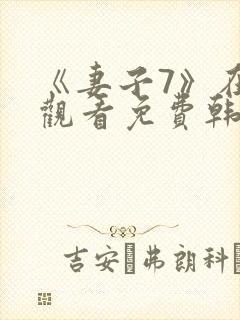 《妻子7》在
觀看免費韓
吉安·弗朗科·